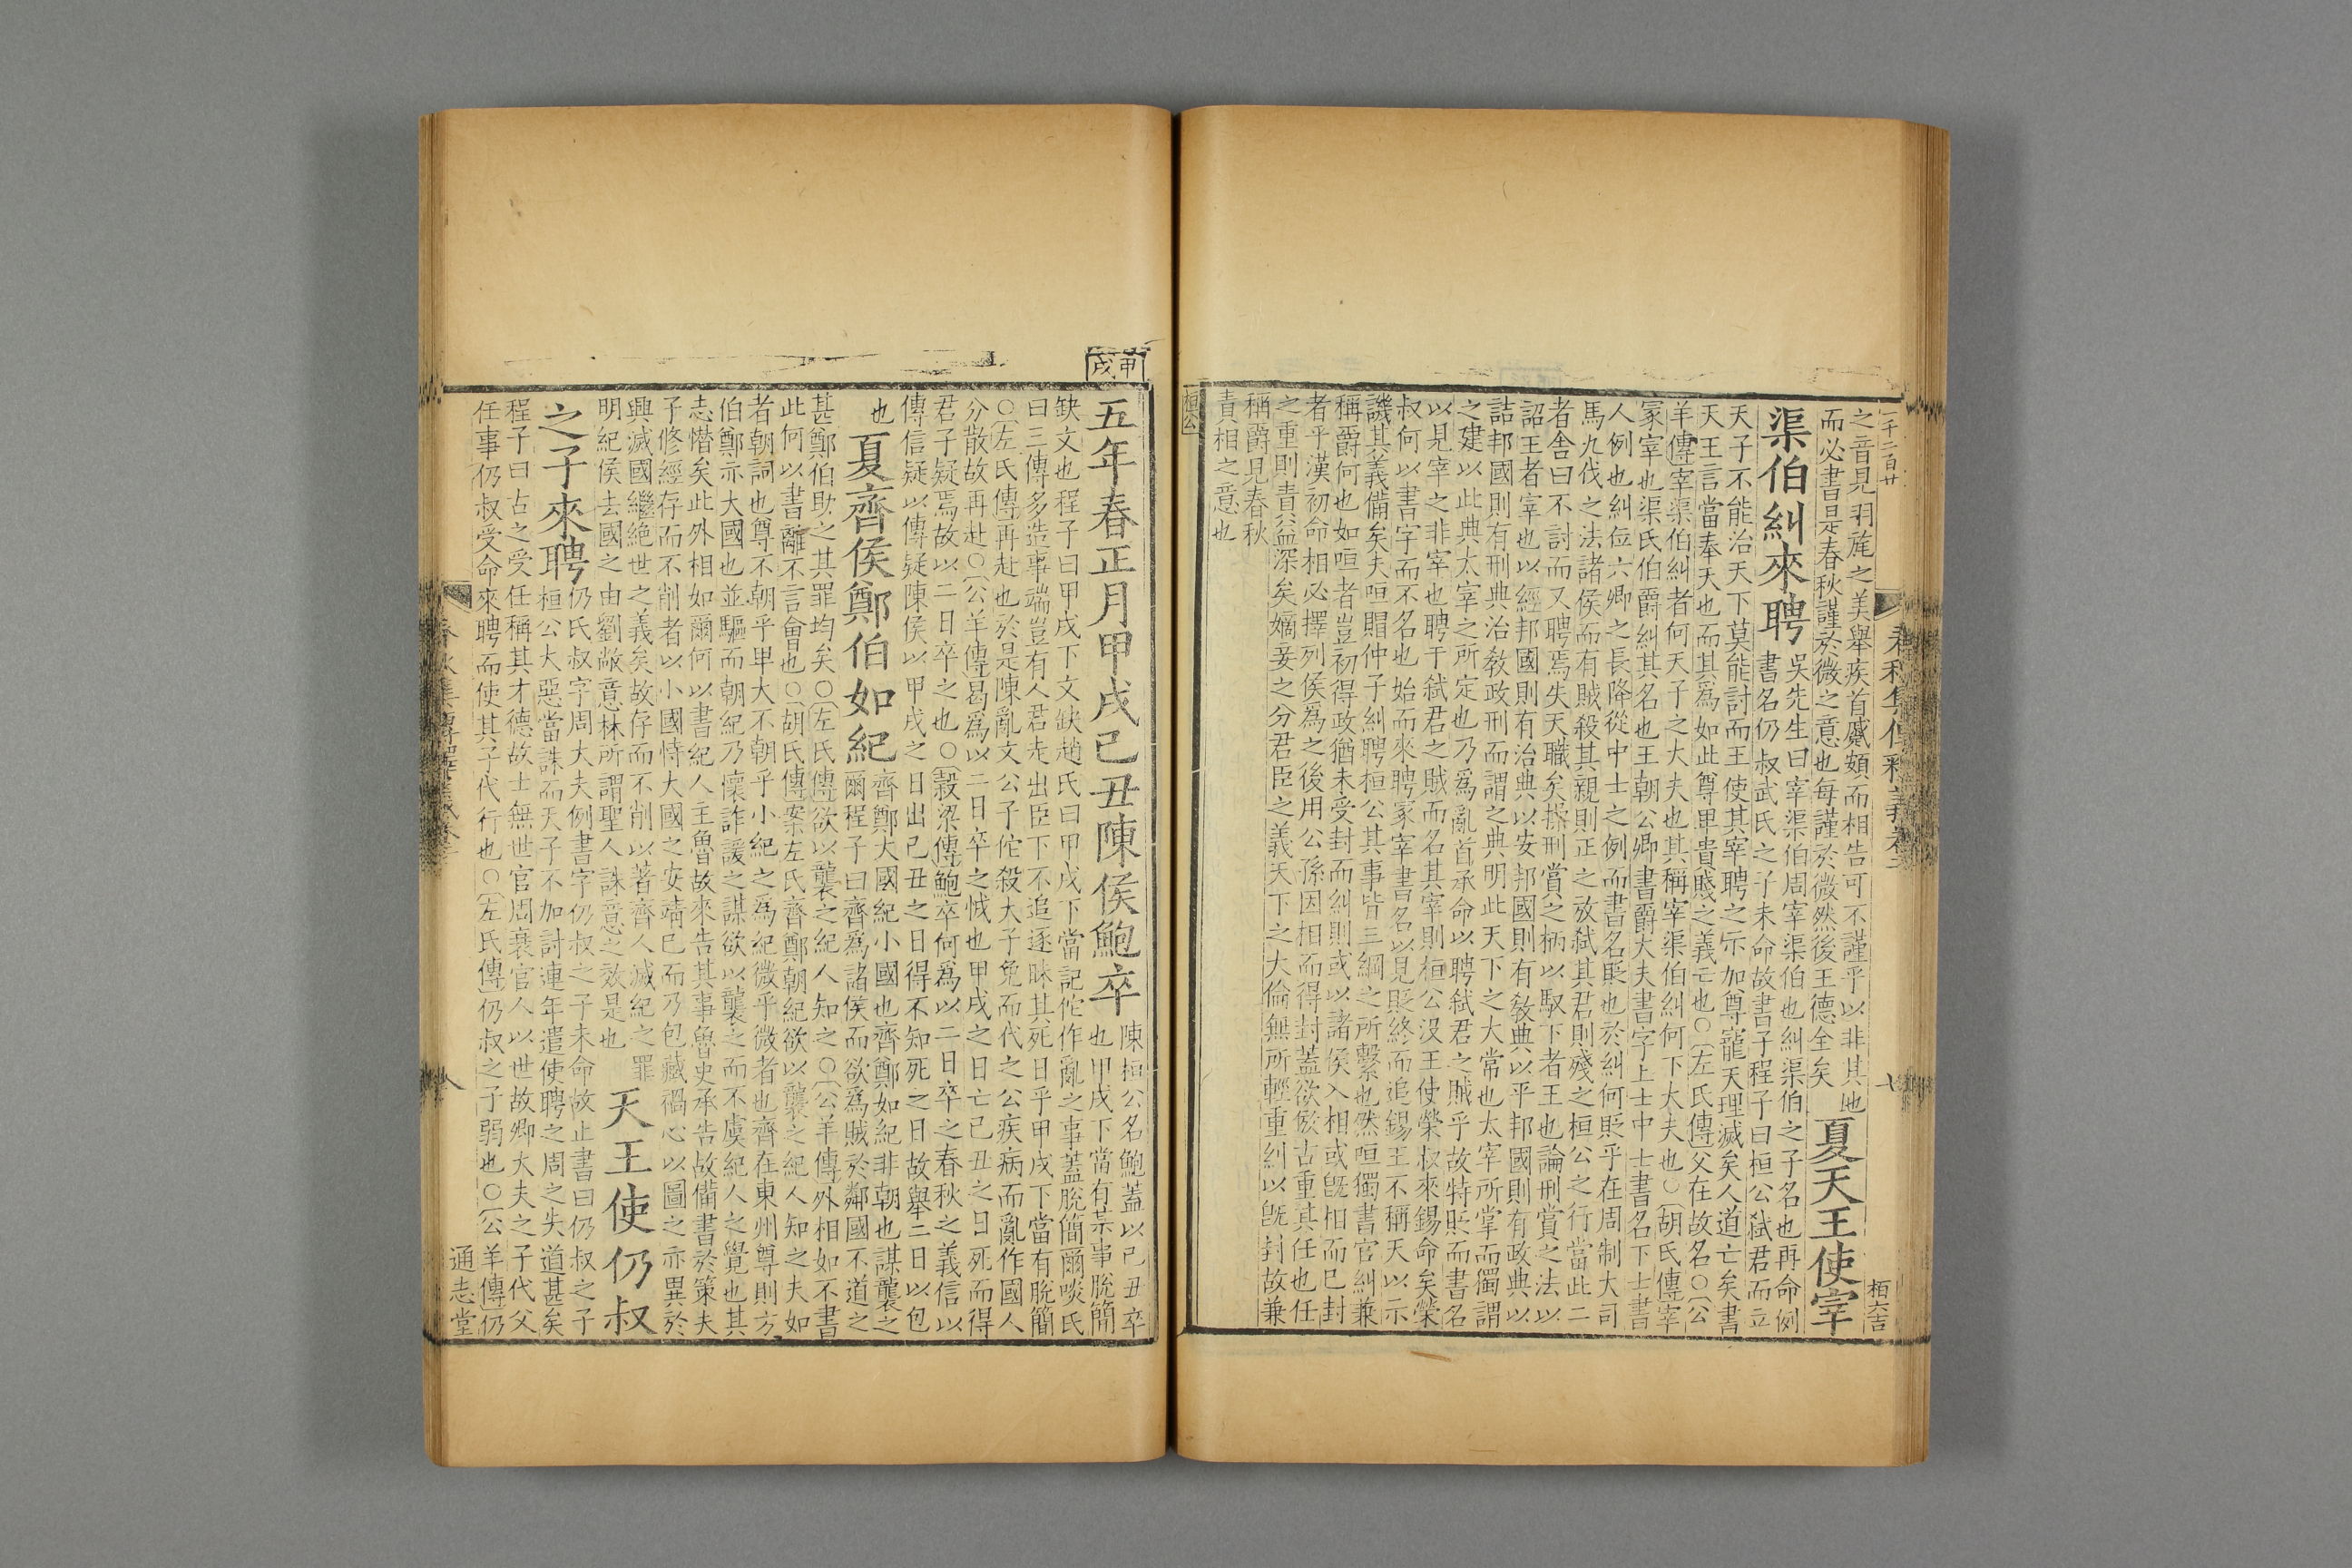 春秋集傳釋義卷二
七
之音見羽旄之美舉疾首蹙頞而相告可不謹乎以非其地
而必書是春秋謹於微之意也每謹於微然後王德全矣
夏天王使宰
渠伯糾來聘
吳先生曰宰渠伯周宰渠伯也糾渠伯之子名也再命例
書名仍叔武氏之子未命故書子程子曰桓公弑君而立
天子不能治天下莫能討而王使其宰聘之示加尊寵天理滅矣人道亡矣書
天王言當奉天也而其為如此尊卑貴賤之義亡也○左氏傳父在故名○公
羊傳宰渠伯糾者何天子之大夫也其稱宰渠伯糾何下大夫也○胡氏傳宰
冢宰也渠氏伯爵糾其名也王朝公卿書爵大夫書字上士中士書名下士書
人例也糾位六卿之長降從中士之例而書名貶也於糾何貶乎在周制大司
馬九伐之法諸侯而有賊殺其親則正之放弑其君則殘之桓公之行當此二
者舍曰不討而又聘焉失天職矣操刑賞之柄以馭下者王也論刑賞之法以
詔王者宰也以經邦國則有治典以安邦國則有敎典以平邦國則有政典以
詰邦國則有刑典治敎政刑而謂之典明此天下之大常也太宰所掌而獨謂
之建以此典太宰之所定也乃為亂首承命以聘弑君之賊乎故特貶而書名
以見宰之非宰也聘于弑君之賊而名其宰則桓公沒王使榮叔來錫命矣榮
叔何以書字而不名也始而來聘冢宰書名以見貶終而追錫王不稱天以示
譏其義備矣夫咺賵仲子糾聘桓公其事皆三綱之所繫也然咺獨書官糾兼
稱爵何也如咺者豈初得政猶未受封而糾則或以諸侯入相或旣相而已封
者乎漢初命相必擇列侯為之後用公孫因相而得封蓋欲倣古重其任也任
之重則責益深矣嫡妾之分君臣之義天下之大倫無所輕重糾以旣封故兼
稱爵見春秋
責相之意也
桓公
甲戌
五年春正月甲戌己丑陳侯鮑卒
陳桓公名鮑蓋以己丑卒
也甲戌下當有某事脫簡
缺文也程子曰甲戌下文缺趙氏曰甲戌下當記佗作亂之事蓋脫簡爾啖氏
曰三傳多造事端豈有人君走出臣下不追逐昧其死日乎甲戌下當有脫簡
○左氏傳再赴也於是陳亂文公子佗殺大子免而代之公疾病而亂作國人
分散故再赴○公羊傳曷為以二日卒之怴也甲戌之日亡己丑之日死而得
君子疑焉故以二日卒之也○穀梁傳鮑卒何為以二日卒之春秋之義信以
傳信疑以傳疑陳侯以甲戌之日出己丑之日得不知死之日故舉二日以包
也
夏齊侯鄭伯如紀
齊鄭大國紀小國也齊鄭如紀非朝也謀襲之
爾程子曰齊為諸侯而欲為賊於鄰國不道之
甚鄭伯助之其罪均矣○左氏傳欲以襲之紀人知之○公羊傳外相如不書
此何以書離不言會也○胡氏傳案左氏齊鄭朝紀欲以襲之紀人知之夫如
者朝詞也尊不朝乎卑大不朝乎小紀之為紀微乎微者也齊在東州尊則方
伯鄭亦大國也並驅而朝紀乃懷詐諼之謀欲以襲之而不虞紀人之覺也其
志憯矣此外相如爾何以書紀人主魯故來告其事魯史承告故備書於策夫
子修經存而不削者以小國恃大國之安靖已而乃包藏禍心以圖之亦異於
興滅國繼絕世之義矣故存而不削以著齊人滅紀之罪
明紀侯去國之由劉敞意林所謂聖人誅意之效是也
天王使仍叔
之子來聘
仍氏叔字周大夫例書字仍叔之子未命故止書曰仍叔之子
桓公大惡當誅而天子不加討連年遣使聘之周之失道甚矣
程子曰古之受任稱其才德故士無世官周衰官人以世故卿大夫之子代父
任事仍叔受命來聘而使其子代行也○左氏傳仍叔之子弱也○公羊傳仍
八
通志堂